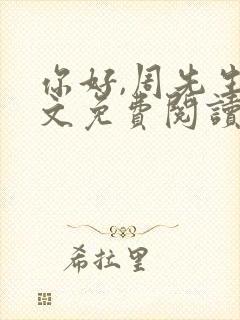 你好,周先生
文免費閱讀
希拉里